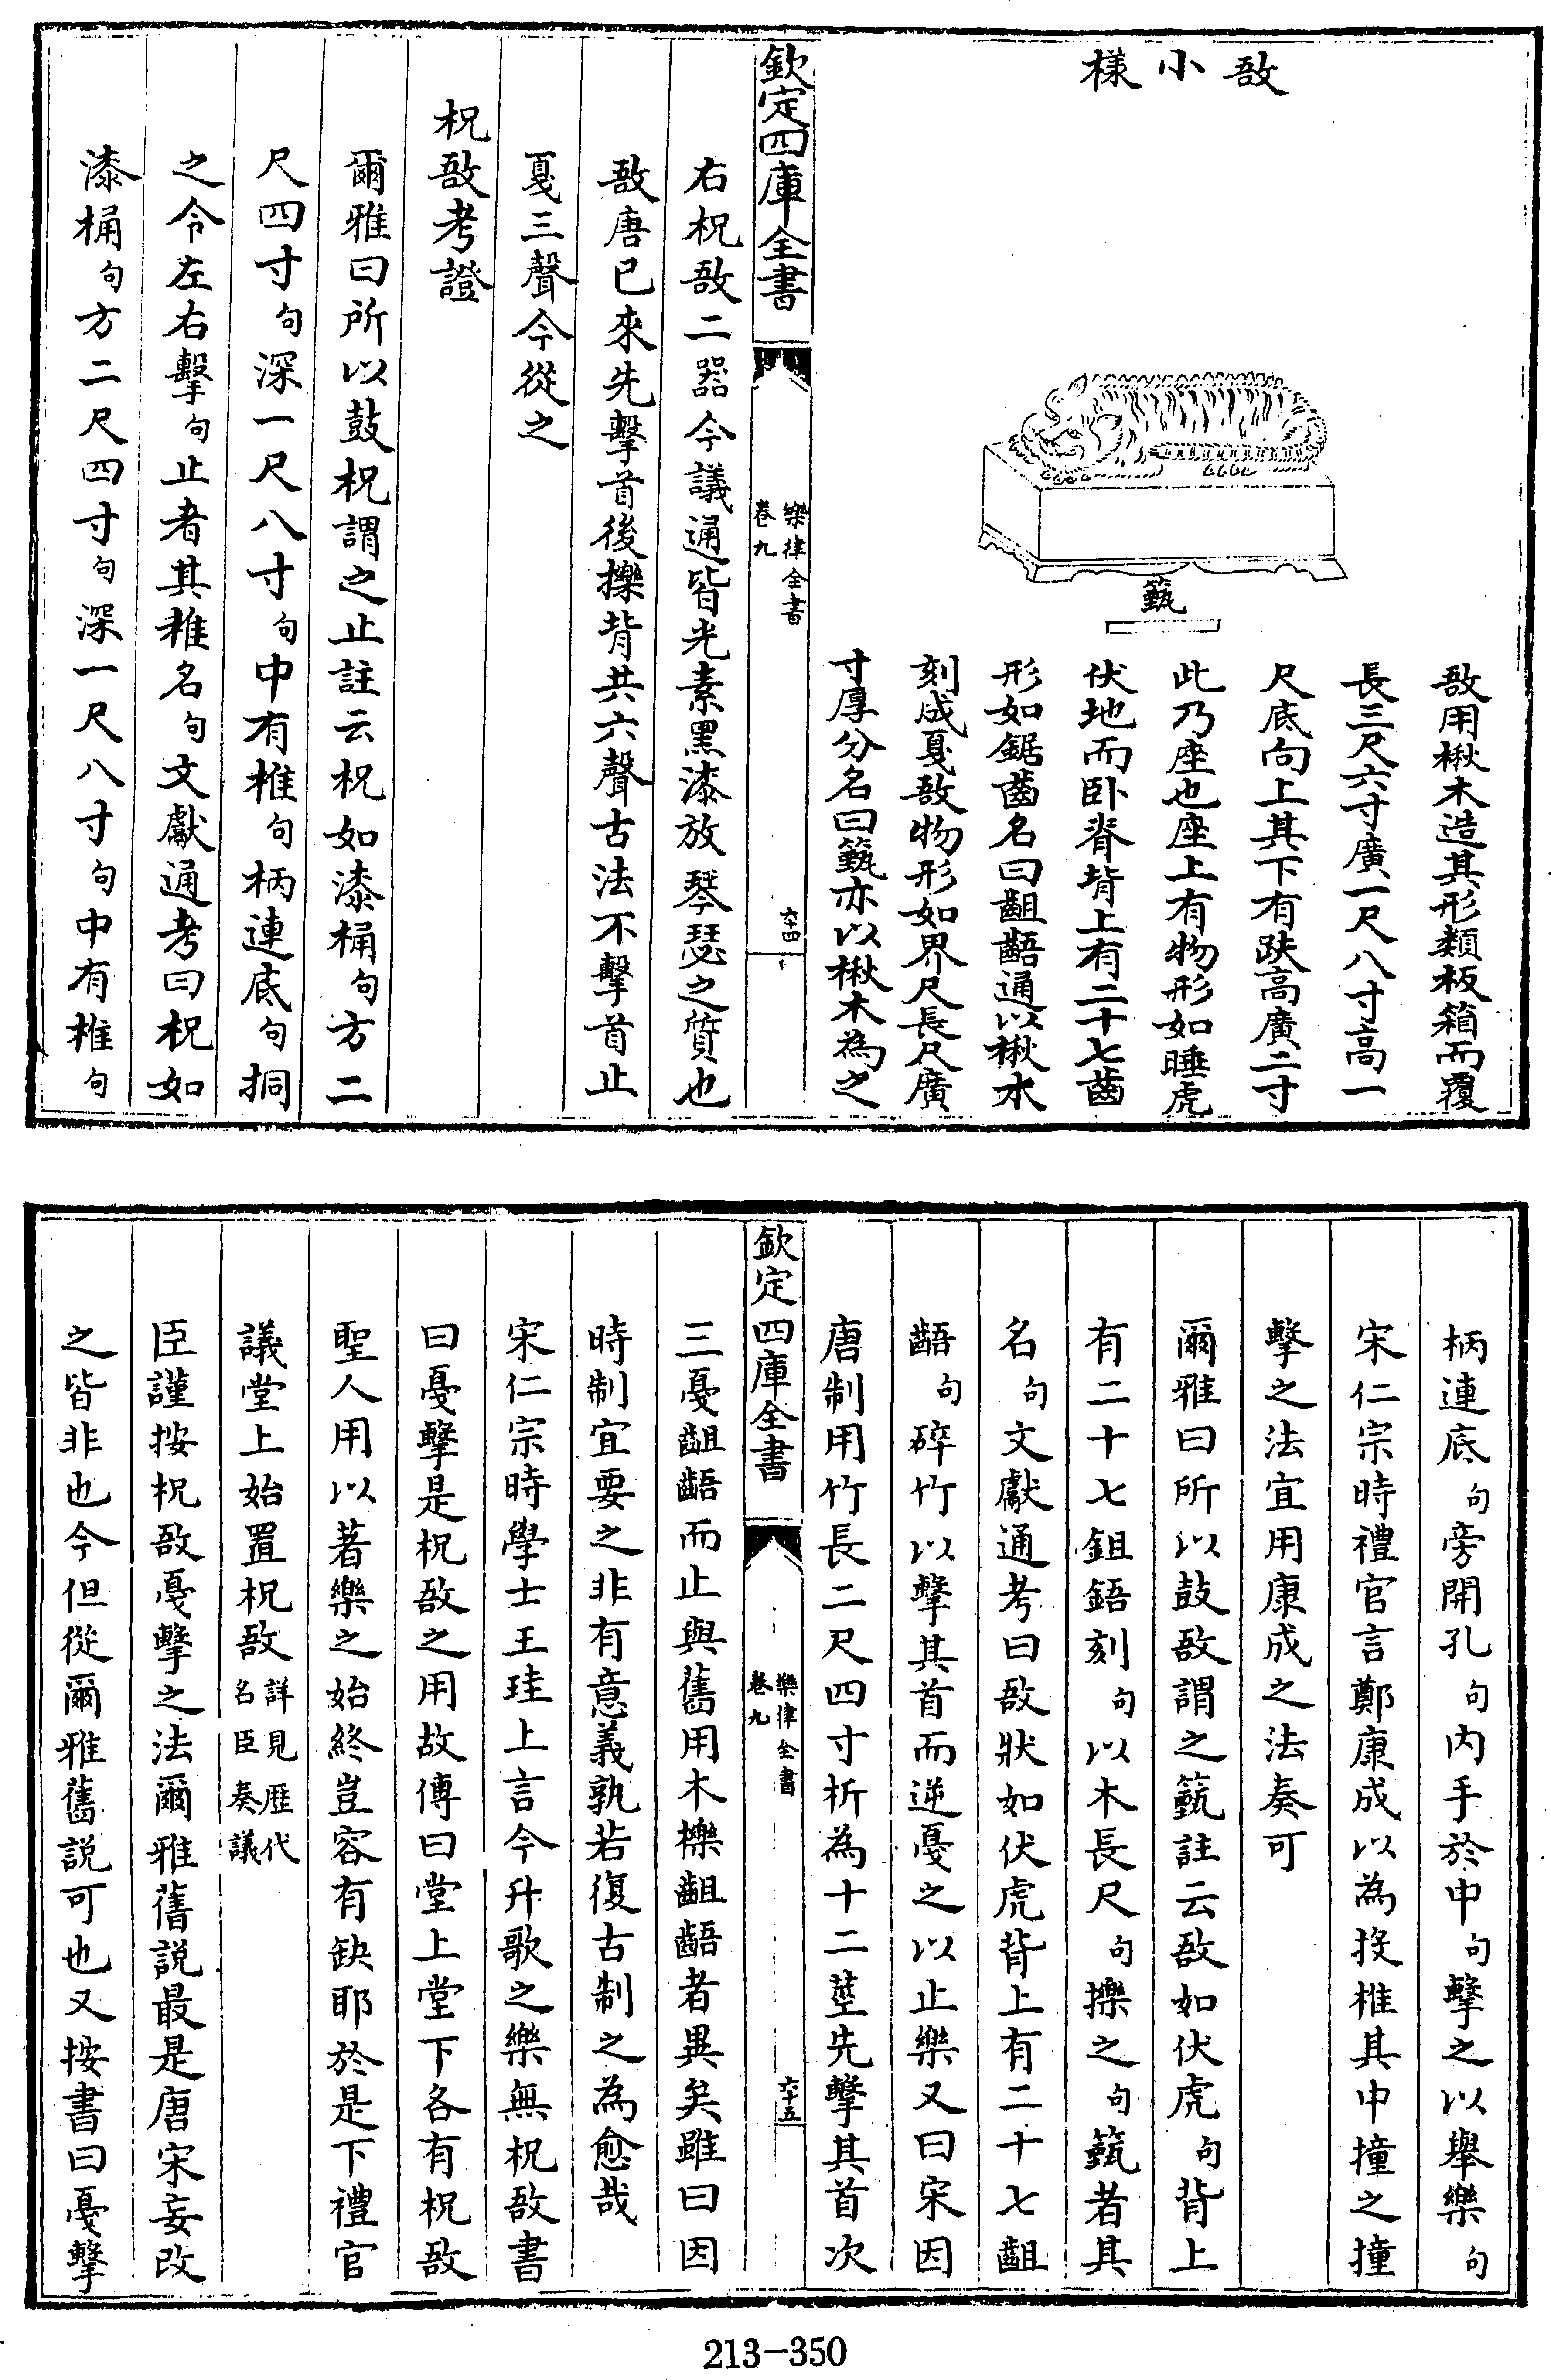 敔小樣
籈
敔用楸木造其形類板箱而覆
長三尺六寸廣一尺八寸高一
尺底向上其下有趺高廣二寸
此乃座也座上有物形如睡虎
伏地而卧脊背上有二十七齒
形如鋸齒名曰齟齬通以楸木
刻成戛敔物形如界尺長尺廣
寸厚分名曰籈亦以楸木為之
欽定四庫全書
樂律全書
卷九
六十四
右柷敔二器今議通皆光素黑漆放琴瑟之質也
敔唐已來先擊首後擽背共六聲古法不擊首止
戛三聲今從之
柷敔考證
爾雅曰所以鼓柷謂之止註云柷如漆桶句方二
尺四寸句深一尺八寸句中有椎句柄連底句挏
之令左右擊句止者其椎名句文獻通考曰柷如
漆桶句方二尺四寸句深一尺八寸句中有椎句
柄連底句旁開孔句内手於中句擊之以舉樂句
宋仁宗時禮官言鄭康成以為投椎其中撞之撞
擊之法宜用康成之法奏可
爾雅曰所以鼓敔謂之籈註云敔如伏虎句背上
有二十七鉏鋙刻句以木長尺句擽之句籈者其
名句文獻通考曰敔狀如伏虎背上有二十七齟
齬句碎竹以擊其首而逆戛之以止樂又曰宋因
唐制用竹長二尺四寸析為十二莖先擊其首次
欽定四庫全書
樂律全書
卷九
六十五
三戛齟齬而止與舊用木櫟齟齬者異矣雖曰因
時制宜要之非有意義孰若復古制之為愈哉
宋仁宗時學士王珪上言今升歌之樂無柷敔書
曰戛擊是柷敔之用故傳曰堂上堂下各有柷敔
聖人用以著樂之始終豈容有缺耶於是下禮官
議堂上始置柷敔詳見歷代名臣奏議
臣謹按柷敔戛擊之法爾雅舊說最是唐宋妄改
之皆非也今但從爾雅舊說可也又按書曰戛擊
213-350